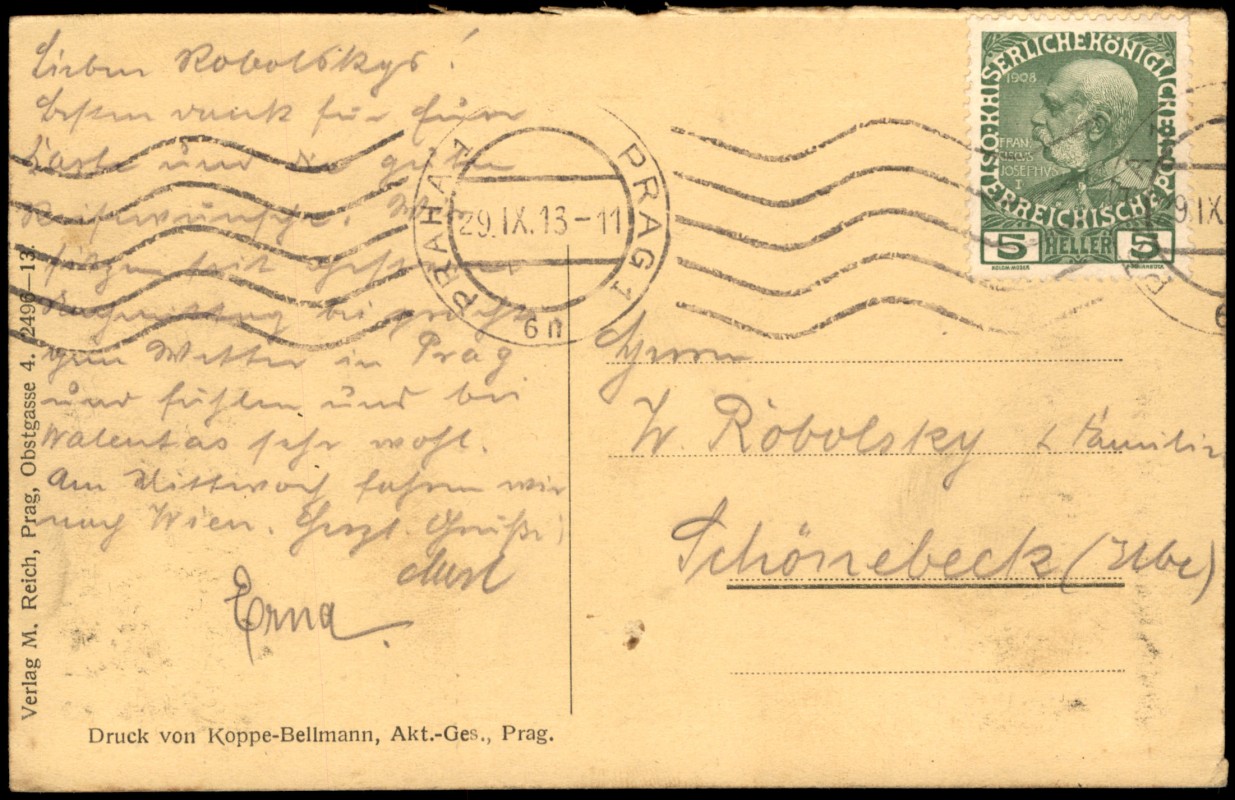 Lieben Robolskys!
Besten Dank für Eure
Karte und die guten
Reisewünsche. Wir
seit gestern
Nachmittag bei
Wetter in Prag
und fühlen uns bei
Walentas sehr wohl.
Am Mittwoch fahren wir
nach Wien. Herzl. Grüße
Erna
Verlag M. Reich, Prag, Obstgasse 4. 2496—13.
Druck von Koppe-Bellmann, Akt.-Ges., Prag.
PRAHA 1 PRAG 1
29.IX.13-11
6n
K.K.ÖSTERREICHISCHE POST
KAISERLICHEKÖNIGLICHE
1908
FRAN
JOSEFHVS
I
5 HELLER 5
9.IX
Herrn
W. Robolsky & Familie
Schönebeck (Elbe)